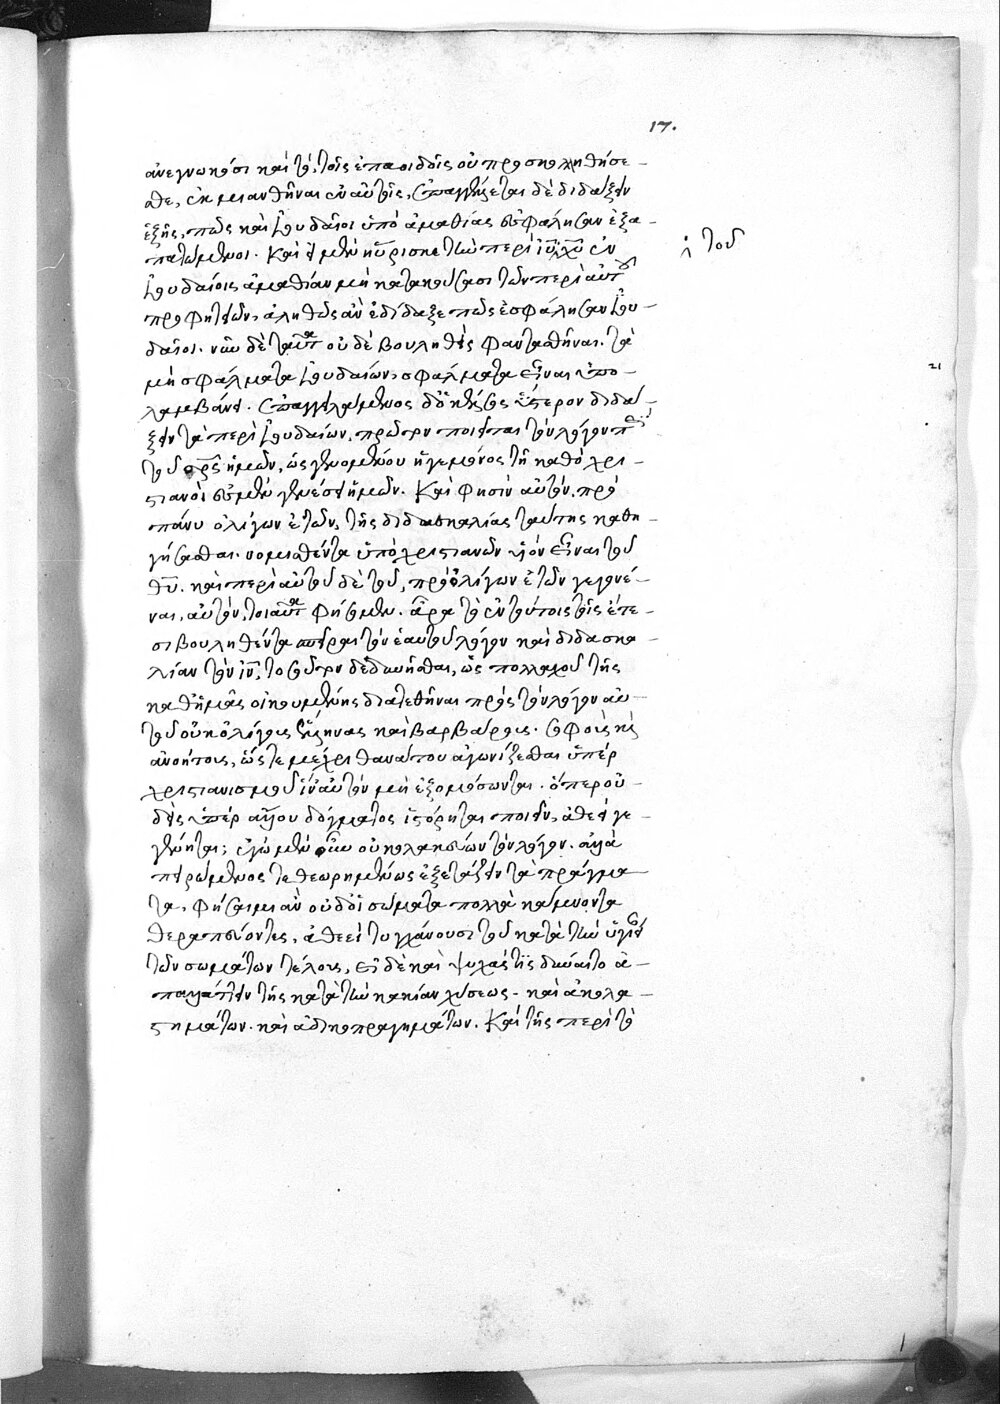 17.
ἀνεγνωκόσι καὶ τὸ, τοῖς ἐπαοιδοῖς οὐ προσκολληθήσε-
σθε, ἐκμιανθῆναι ἐν αὐτοῖς, ἐπαγγέλλεται δὲ διδάξειν
ἑξῆς, πῶς καὶ ἰουδαῖοι ὑπὸ ἀμαθίας ἐσφάλησαν ἐξα-
πατώμενοι. καὶ εἰ μὲν ηὕρισκε τὴν περὶ ἰυ χυ ἐν
ἰουδαίοις ἀμαθίαν μὴ κατακούσασι τῶν περὶ αὐτοῦ
ἢ τοῦ
προφητῶν, ἀληθῶς ἂν ἐδίδαξε πῶς ἐσφάλησαν ἰου-
δαῖοι. νῦν δὲ ταῦτα οὐδὲ βουληθεὶς φαντασθῆναι. τὰ
μὴ σφάλματα ἰουδαίων, σφάλματα εἶναι ὑπο-
λαμβάνει. ἐπαγγειλάμενος δὲ ὁ κέλσος ὕστερον διδά-
ξειν τὰ περὶ ἰουδαίων, πρῶτον ποιεῖται τὸν λόγον περὶ
τοῦ σρς ἡμῶν, ὡς γενομένου ἡγεμόνος τῇ καθὸ χρι-
στιανοί ἐσμεν γενέσει ἡμῶν. καὶ φησὶν αὐτὸν, πρὸ
πάνυ ὀλίγων ἐτῶν, τῆς διδασκαλίας ταύτης καθη-
γήσασθαι. νομισθέντα ὑπὸ χριστιανῶν υἱὸν εἶναι τοῦ
θυ. καὶ περὶ αὐτοῦ δὲ τοῦ, πρὸ ὀλίγων ἐτῶν γεγονέ-
ναι, αὐτὸν, τοιαῦτα φήσομεν. ἆρα τὸ ἐν τοσούτοις τοῖς ἔτε-
σι βουληθέντα σπεῖραι τὸν ἑαυτοῦ λόγον καὶ διδασκα-
λίαν τὸν ἰν, τοσοῦτον δεδυνῆσθαι, ὡς πολλαχοῦ τῆς
καθ' ἡμᾶς οἰκουμένης διατεθῆναι πρὸς τὸν λόγον αὐ-
τοῦ οὐκ ὀλίγους ἕλληνας καὶ βαρβάρους. σοφοὺς καὶ
ἀνοήτους, ὥστε μέχρι θανάτου ἀγωνίζεσθαι ὑπὲρ
χριστιανισμοῦ ἵν' αὐτὸν μὴ ἐξομόσωνται. ὅπερ οὐ-
δεὶς ὑπὲρ ἄλλου δόγματος ἱστόρηται ποιεῖν, ἀθεεὶ γε-
γένηται; ἐγὼ μὲν οὖν οὐ κολακεύων τὸν λόγον. ἀλλὰ
πειρώμενος τεθεωρημένως ἐξετάζειν τὰ πράγμα
τα, φήσαιμι ἂν οὐδ' οἱ σώματα πολλὰ κάμνοντα
θεραπεύοντες, ἀθεεὶ τυγχάνουσι τοῦ κατὰ τὴν ὑγίειαν
τῶν σωμάτων τέλους, εἰ δὲ καὶ ψυχάς τις δύναιτο ἀ-
παλλάττειν τῆς κατὰ τὴν κακίαν χύσεως. καὶ ἀκολα-
στημάτων. καὶ ἀδικοπραγημάτων. καὶ τῆς περὶ τὸ
21